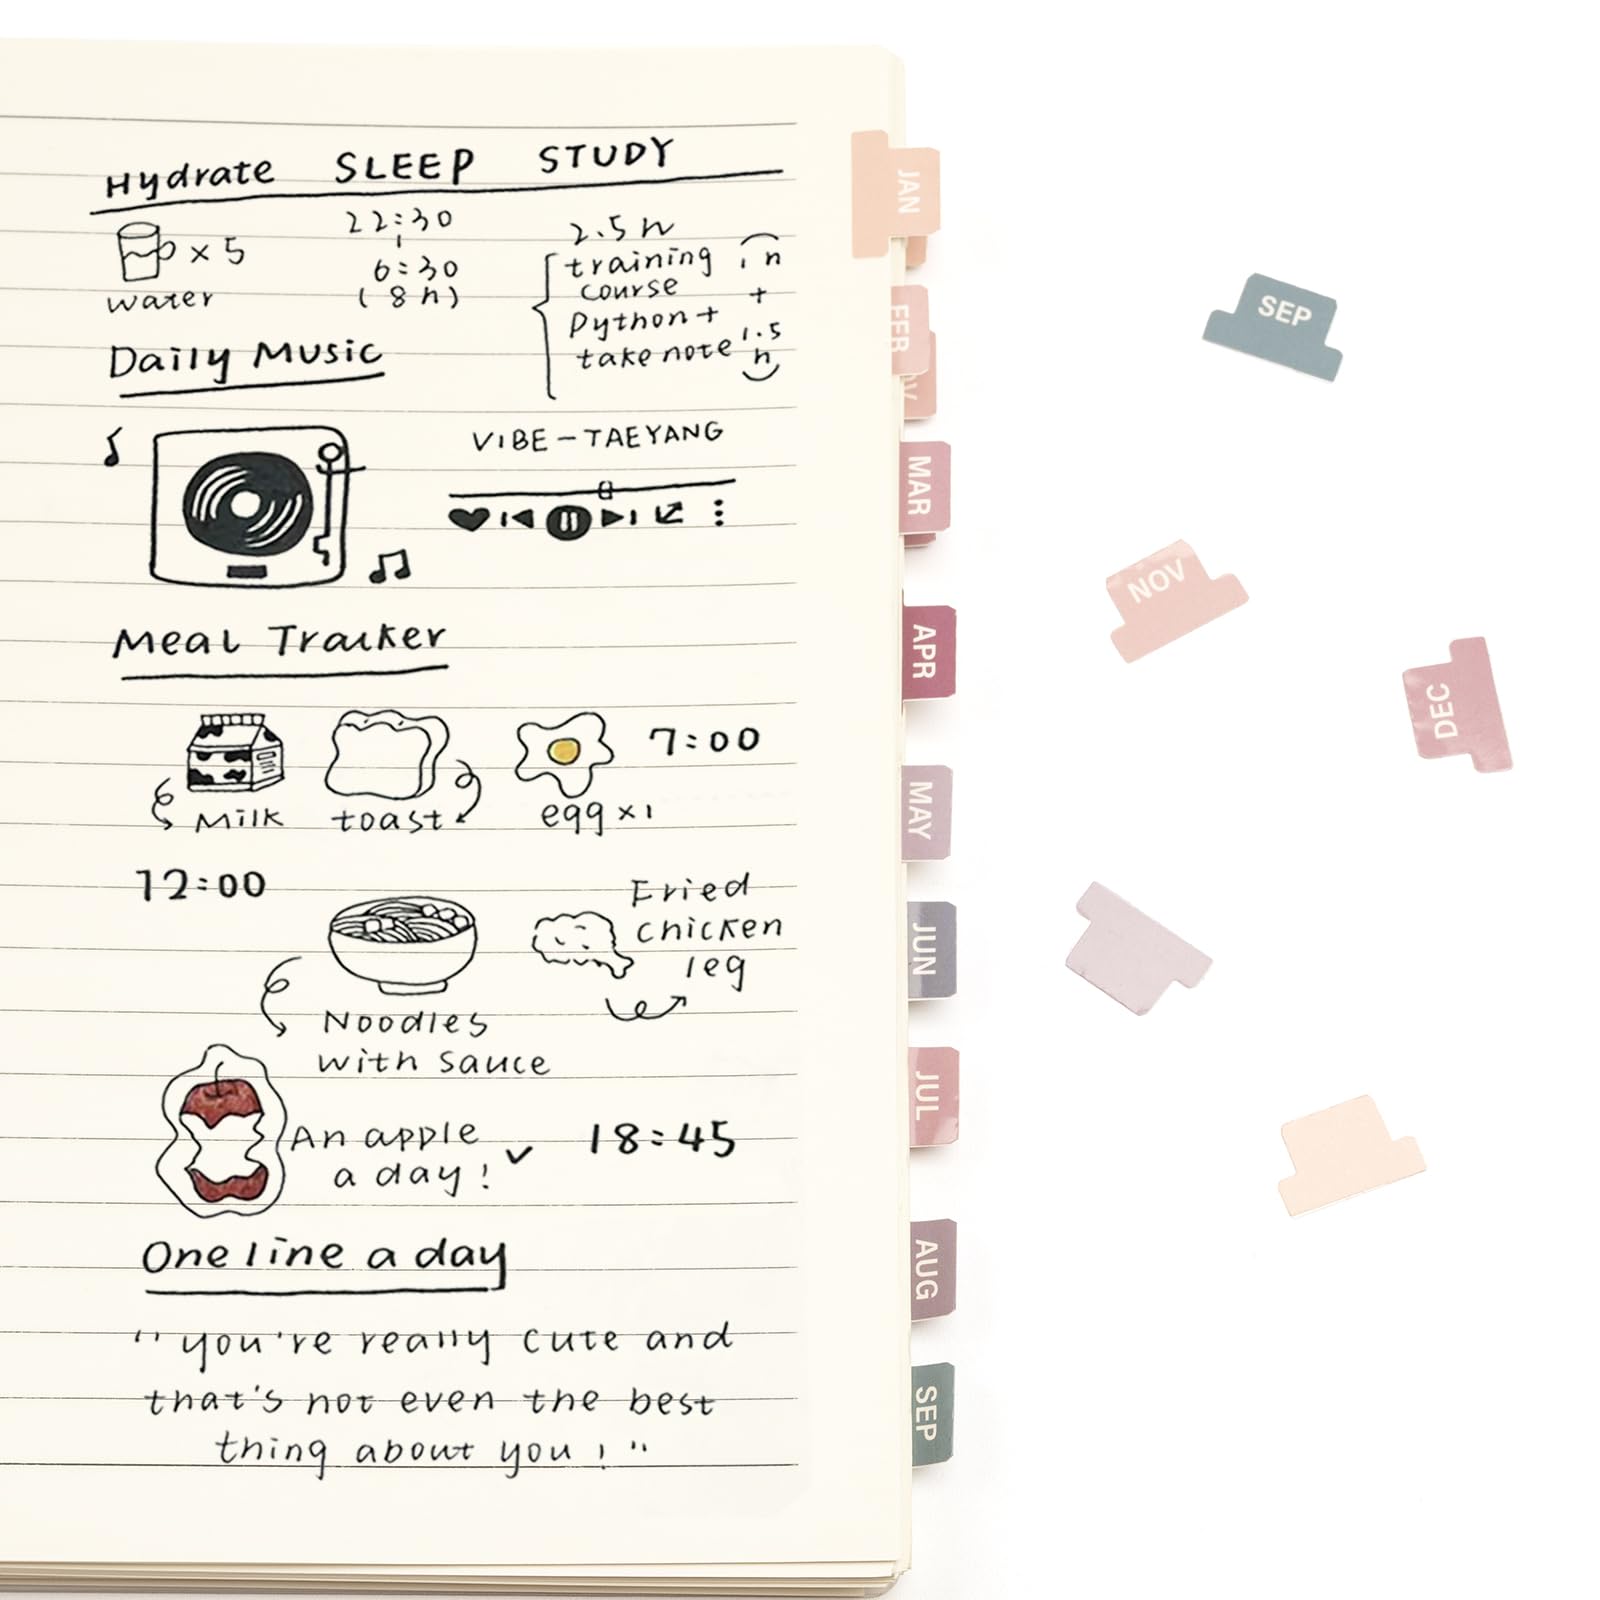 Hydrate SLEEP STUDY
x 5
water
22:30
6:30
(8h)
2.5h
training
course
Python +
take note
1h
+
1.5
h
Daily Music
VIBE - TAEYANG
Meal Tracker
Milk
toast
egg x1
7:00
12:00
Noodles
with sauce
Fried
chicken
leg
An apple
a day!
18:45
One line a day
"you're really cute and
that's not even the best
thing about you!"
JAN
FEB
MAR
APR
MAY
JUN
JUL
AUG
SEP
SEP
NOV
DEC